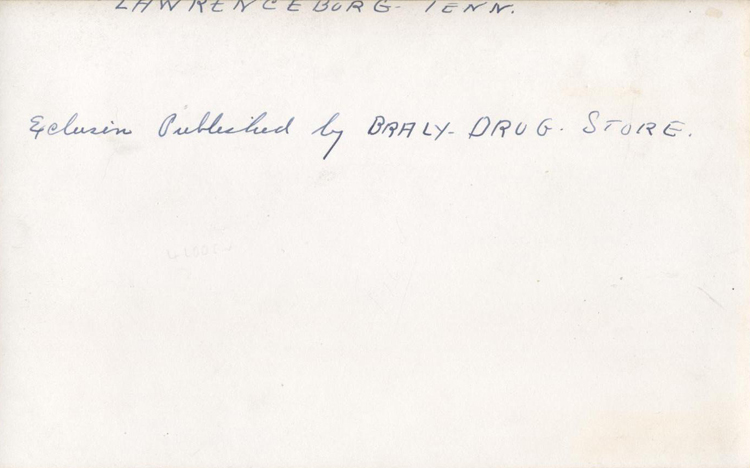 LAWRENCEBURG- TENN.
Exclusiv Published by BRALY- DRUG. STORE.